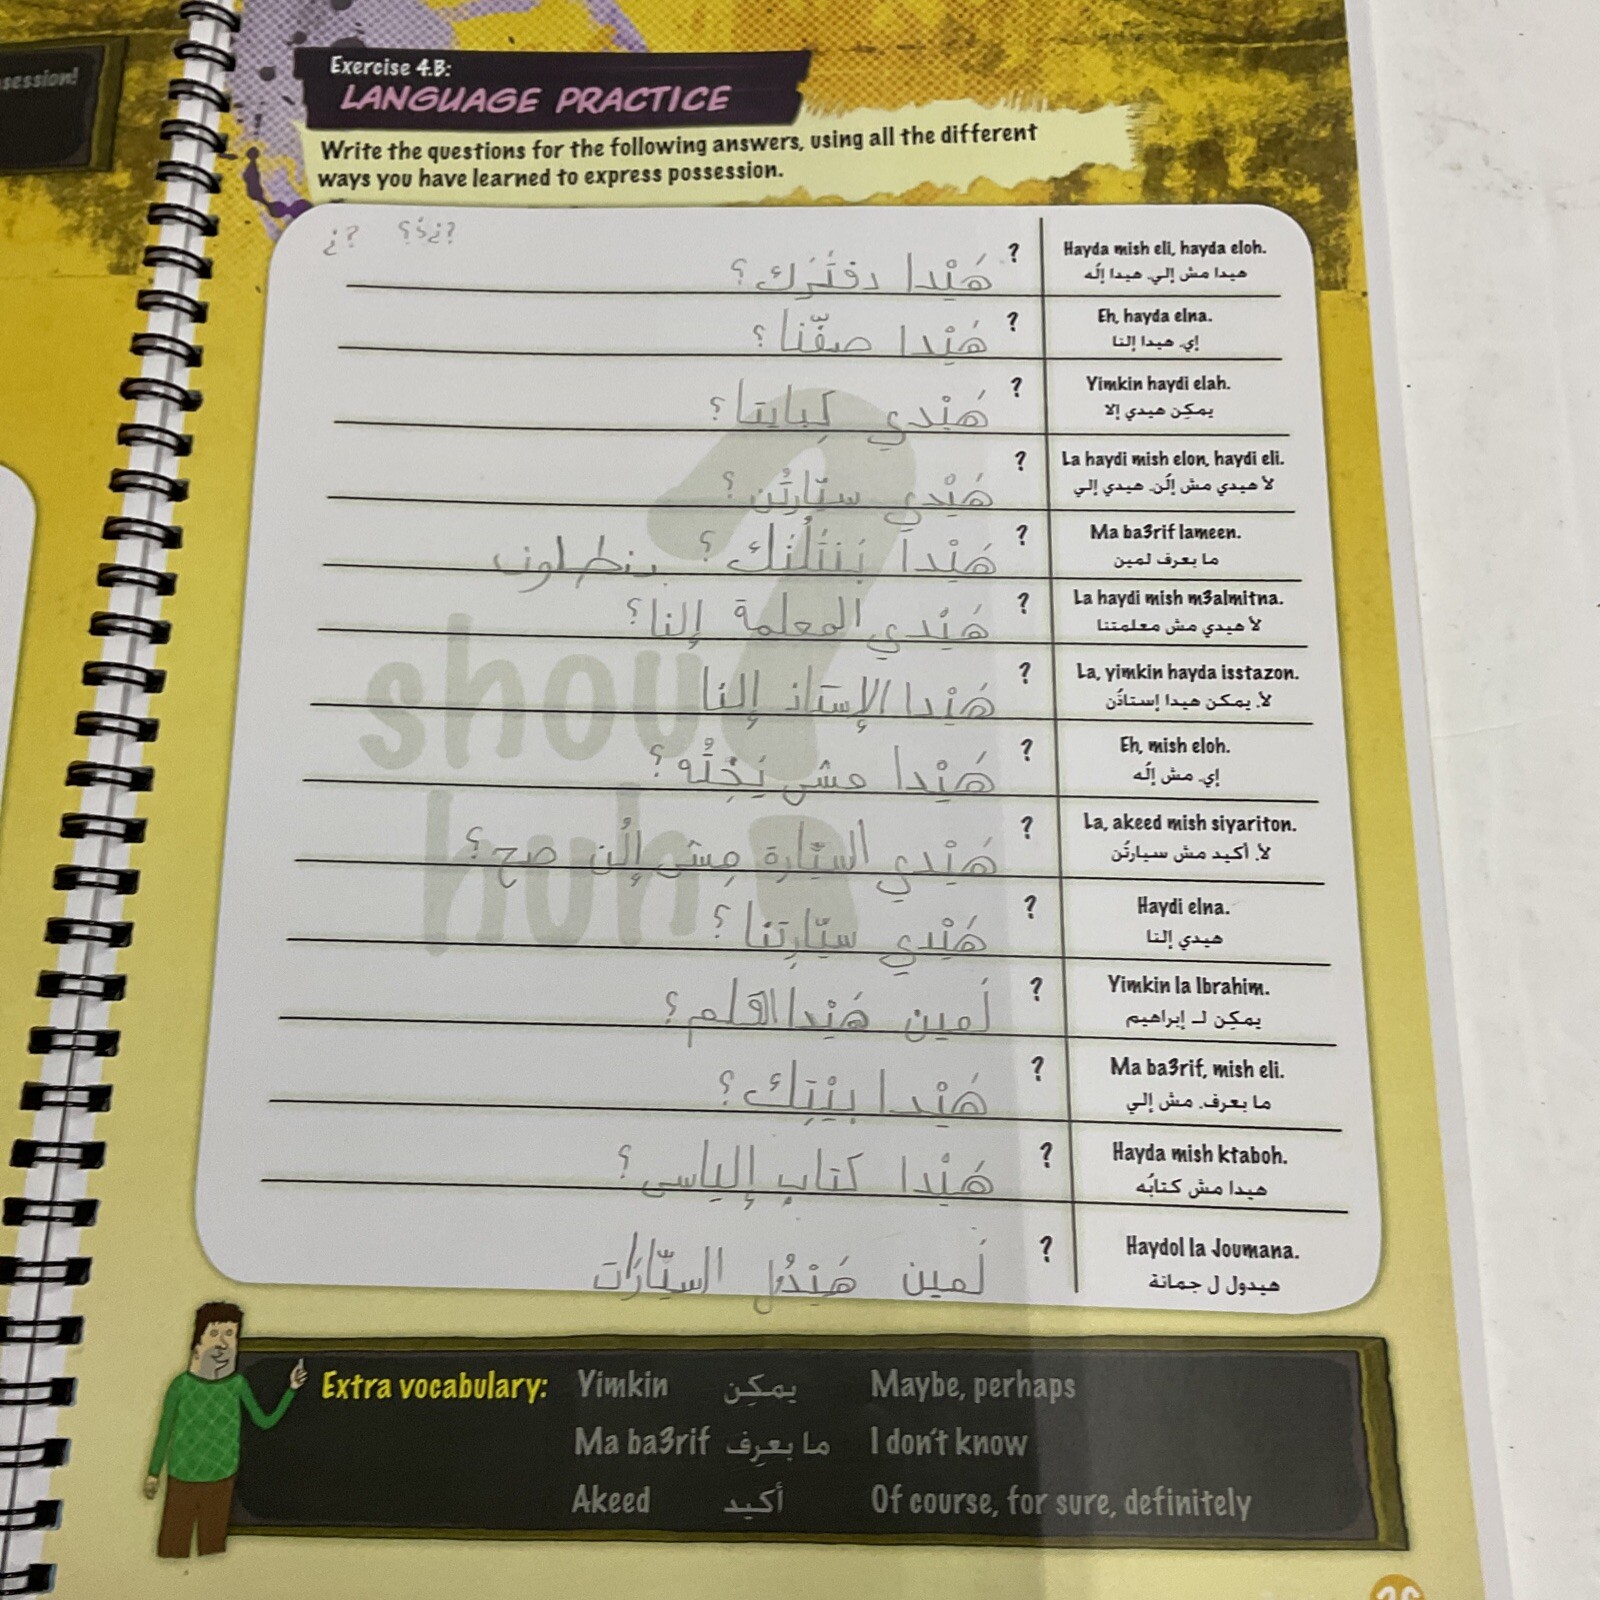 session!
Exercise 4.B:
LANGUAGE PRACTICE
Write the questions for the following answers, using all the different
ways you have learned to express possession.
؟؟ ?¿
Hayda mish eli, hayda eloh.
هيدا مش إلي. هيدا إلُه
? هَيْدا دفتَرك؟
Eh, hayda elna.
إي. هيدا إلنا
? هَيْدا صفّنا؟
Yimkin haydi elah.
يمكِن هيدي إلا
? هَيْدي كِبايتا؟
La haydi mish elon, haydi eli.
لأ هيدي مش إلُن. هيدي إلي
? هَيْدي سيّارتُن؟
Ma ba3rif lameen.
ما بعرف لمين
? هَيْدا بَنتلُنك؟ بنطلون
La haydi mish m3almitna.
لأ هيدي مش معلمتنا
? هَيْدي المعلمة إلنا؟
La, yimkin hayda isstazon.
لأ. يمكن هيدا إستاذُن
? هَيْدا الإستاذ إلنا
Eh, mish eloh.
إي. مش إلُه
? هَيْدا مش
La, akeed mish siyariton.
لأ. أكيد مش سيارتُن
? هَيْدي السيّارة مِش إلُن صح؟
Haydi elna.
هيدي إلنا
? هَيْدي سيّارِتنا؟
Yimkin la Ibrahim.
يمكِن لـ إبراهيم
? لَمين هَيْدا القلم؟
Ma ba3rif, mish eli.
ما بعرف. مش إلي
? هَيْدا بيْتِك؟
Hayda mish ktaboh.
هيدا مش كتابُه
? هَيْدا كتاب إلياس؟
Haydol la Joumana.
هيدول ل جمانة
? لَمين هَيْدُل السيّارَات
shou
huh?
Extra vocabulary: Yimkin يمكِن Maybe, perhaps
Ma ba3rif ما بعرِف I don't know
Akeed أكيد Of course, for sure, definitely